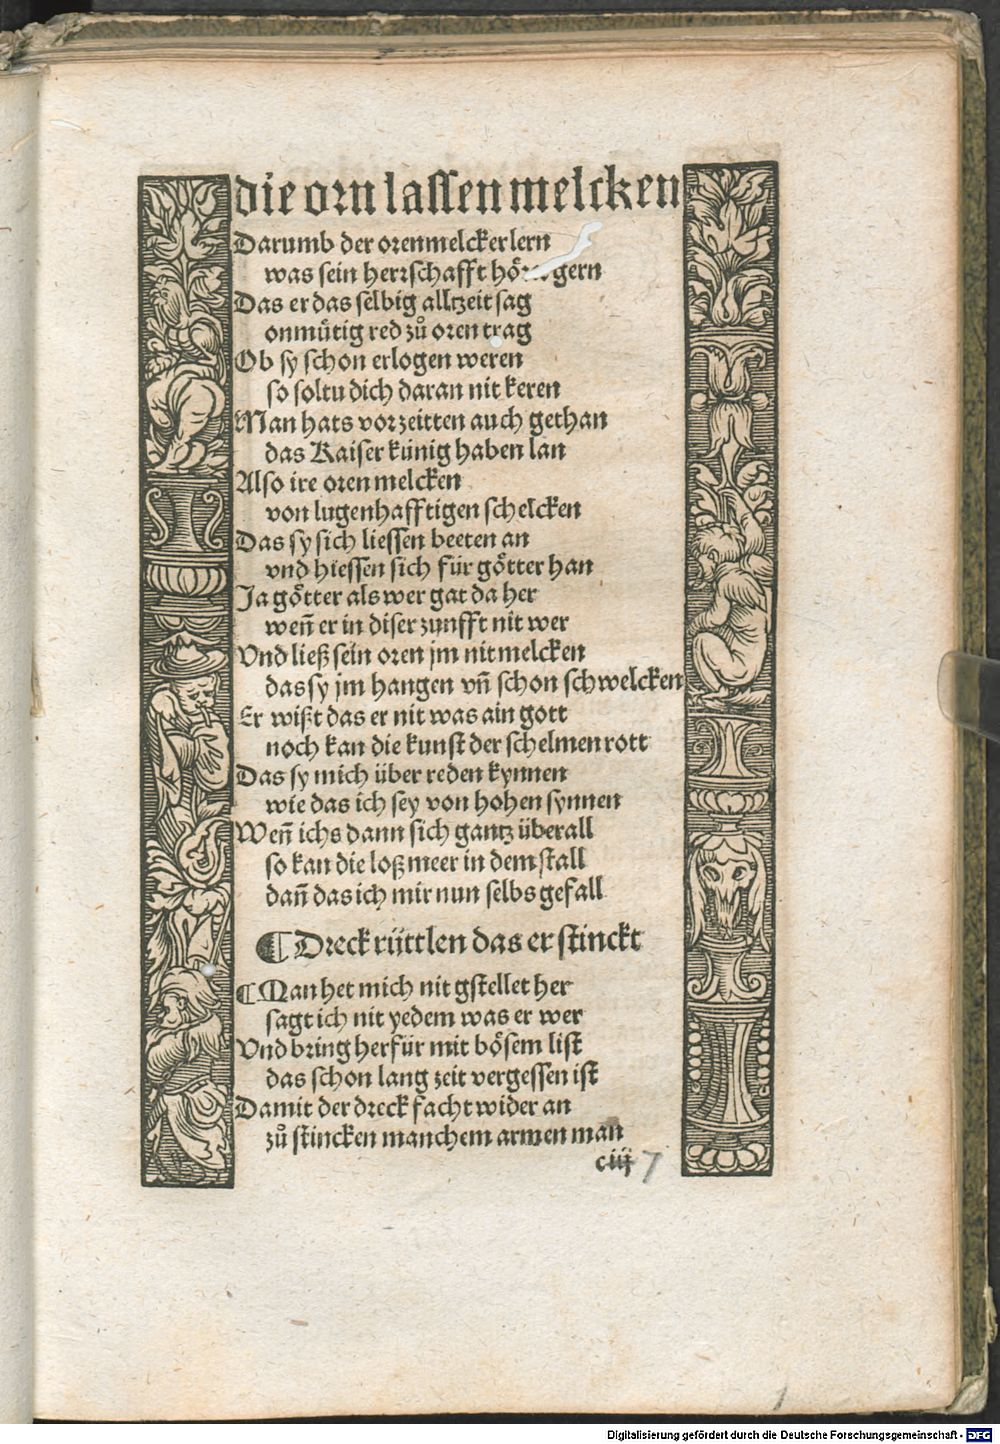 die orn lassen melcken
Darumb der orenmelcker lern
was sein herrschafft gern
Das er das selbig alltzeit sag
onmütig red zů oren trag
Ob sy schon erlogen weren
so soltu dich daran nit keren
Man hats vorzeitten auch gethan
das Kaiser künig haben lan
Also ire oren melcken
von lugenhafftigen schelcken
Das sy sich liessen beeten an
vnd hiessen sich für götter han
Ja götter als wer gat da her
weñ er in diser zunfft nit wer
Vnd ließ sein oren jm nit melcken
das sy jm hangen vñ schon schwelcken
Er wißt das er nit was ain gott
noch kan die kunst der schelmen rott
Das sy mich über reden kynnen
wie das ich sey von hohen synnen
Weñ ichs dann sich gantz überall
so kan die loß meer in dem stall
dañ das ich mir nun selbs gefall
¶ Dreck rüttlen das er stinckt
¶ Man het mich nit gstellet her
sagt ich nit yedem was er wer
Vnd bring herfür mit bösem list
das schon lang zeit vergessen ist
Damit der dreck facht wider an
zů stincken manchem armen man
ciij 7
Digitalisierung gefördert durch die Deutsche Forschungsgemeinschaft - DFG